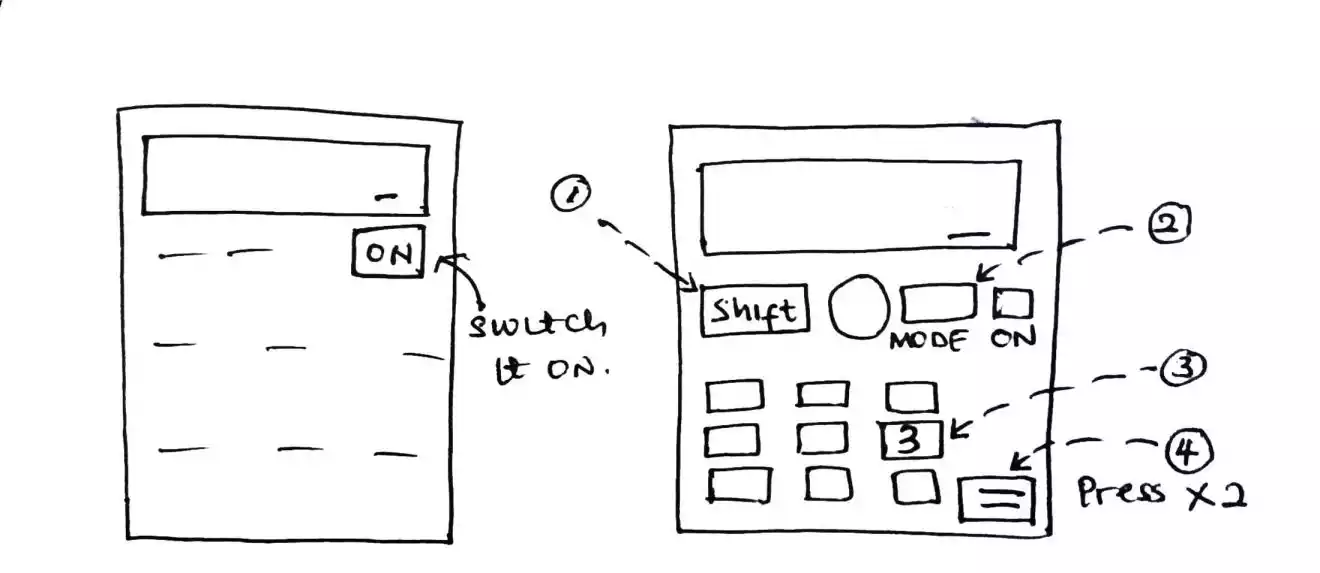 ON
switch
it ON.
①
Shift
MODE
ON
②
③
3
④
=
Press x2